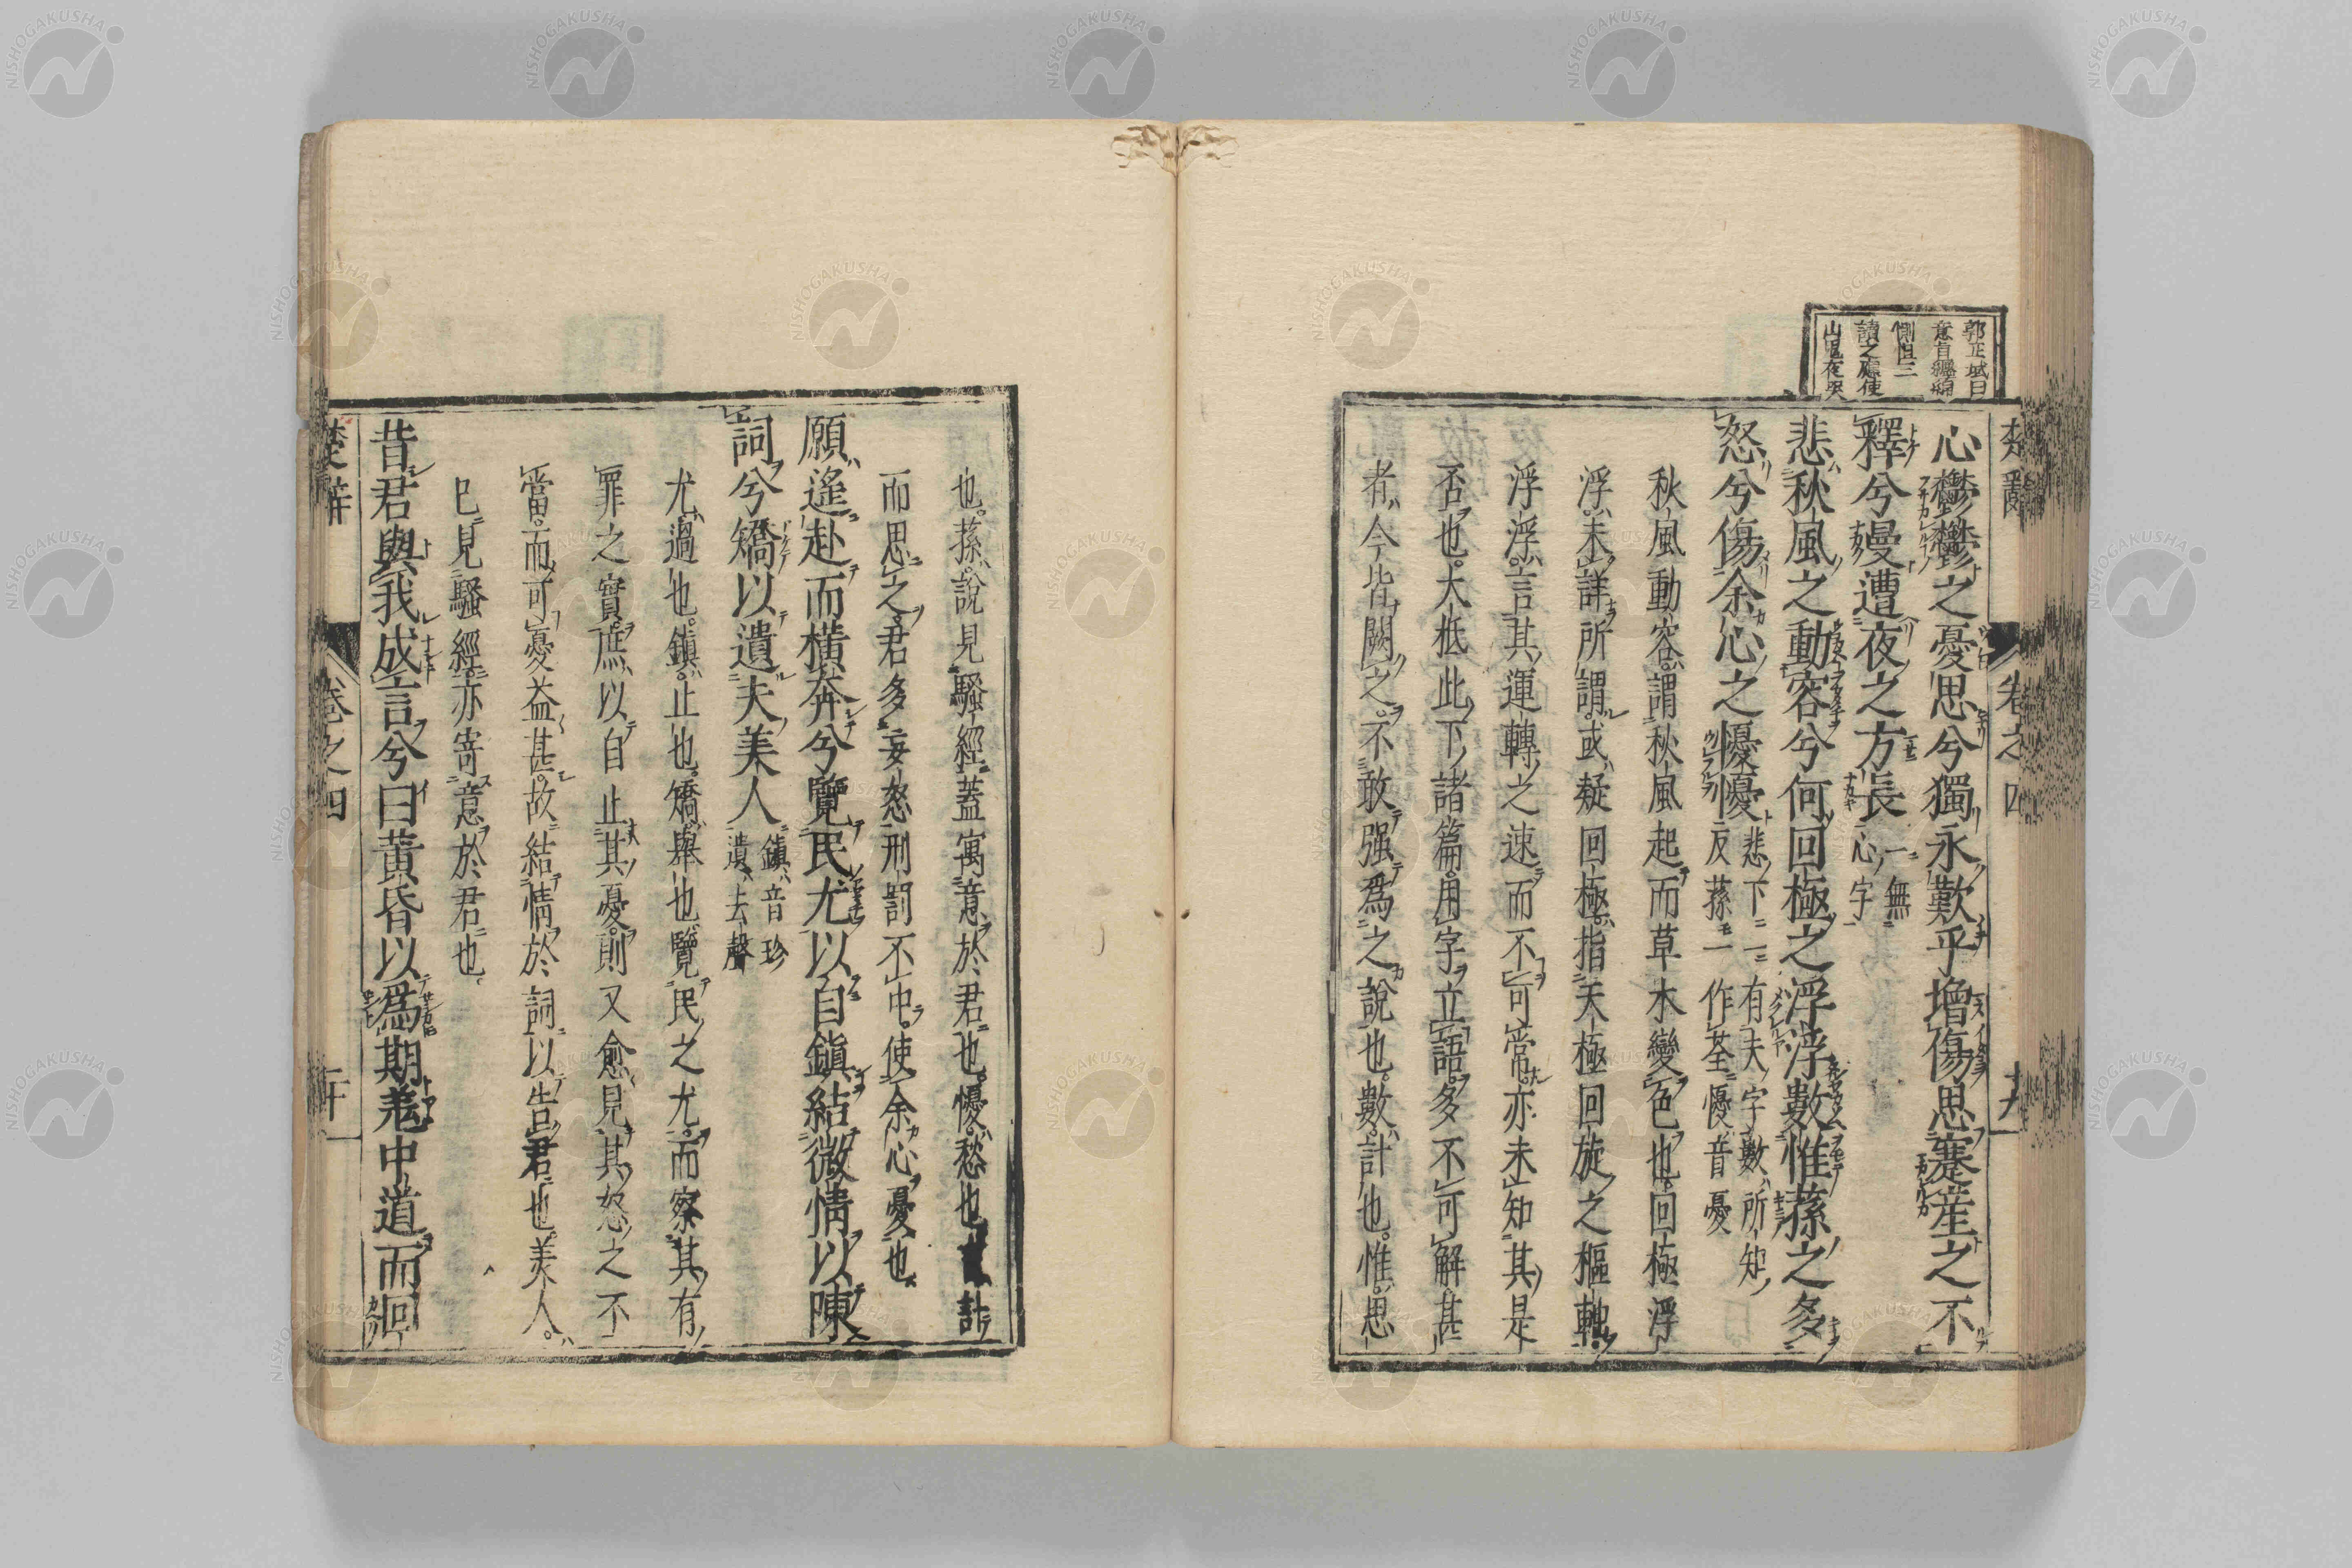 郭正域曰
意旨纒綿
惻怛三
讀之應使
山鬼夜哭
楚辭 卷之四
心鬱鬱之憂思兮獨永歎乎増傷思蹇産之不
釋兮曼遭夜之方長一無心字
悲秋風之動容兮何回極之浮浮數惟蓀之多
怒兮傷余心之懮懮悲下一有夫字數所知反蓀一作荃懮音憂
秋風動容謂秋風起而草木變色也回極浮
浮未詳所謂或疑回極指天極回旋之樞軸
浮浮言其運轉之速而不可常亦未知其是
否也大抵此下諸篇用字立語多不可解甚
者今皆闕之不敢强爲之説也數計也惟思
也蓀説見騷經蓋寓意於君也懮愁也 計
而思之君多妄怒刑罰不中使余心憂也
願遙赴而橫奔兮覽民尤以自鎭結微情以陳
詞兮矯以遺夫美人鎭音珍遺去聲
尤過也鎭止也矯舉也覽民之尤而察其有
罪之實庶以自止其憂則又愈見其怒之不
當而可憂益甚故結情於詞以告君也美人
已見騷經亦寄意於君也
昔君與我成言兮曰黄昏以爲期羌中道而迴
楚辭 卷之四